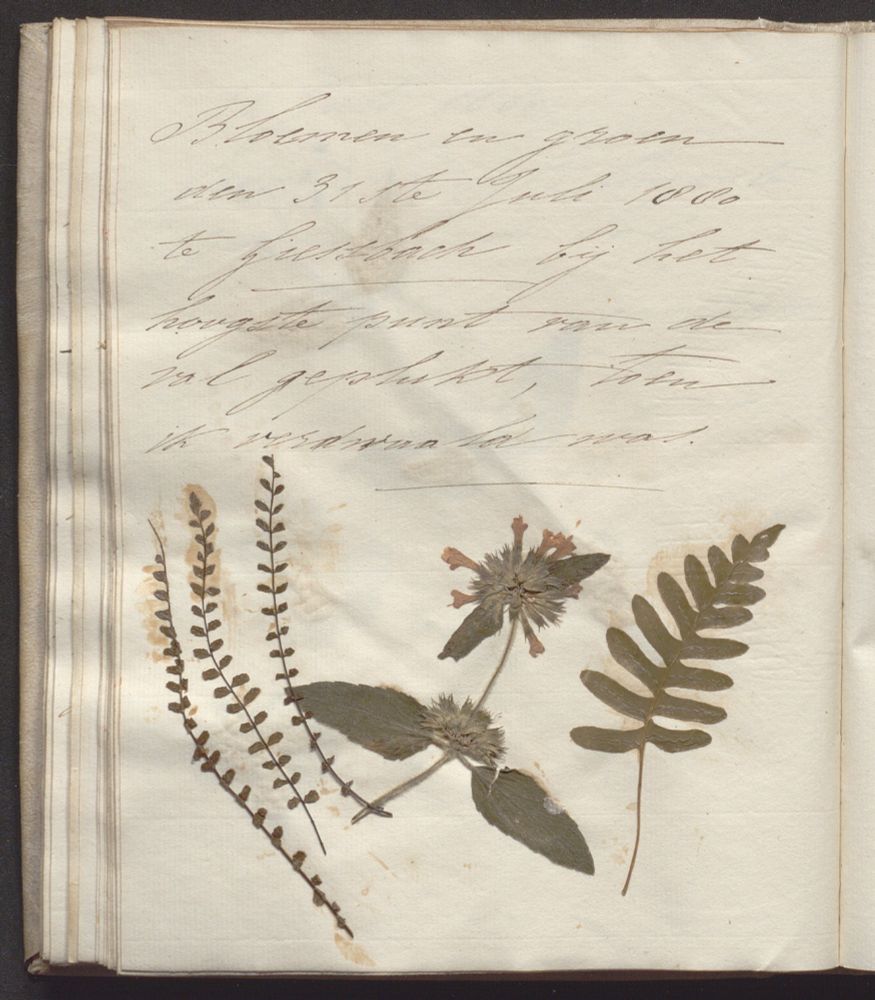 Bloemen en groen
den 31ste Juli 1880
te Giessbach bij het
hoogste punt van de
val geplukt, toen
ik verdwaald was.